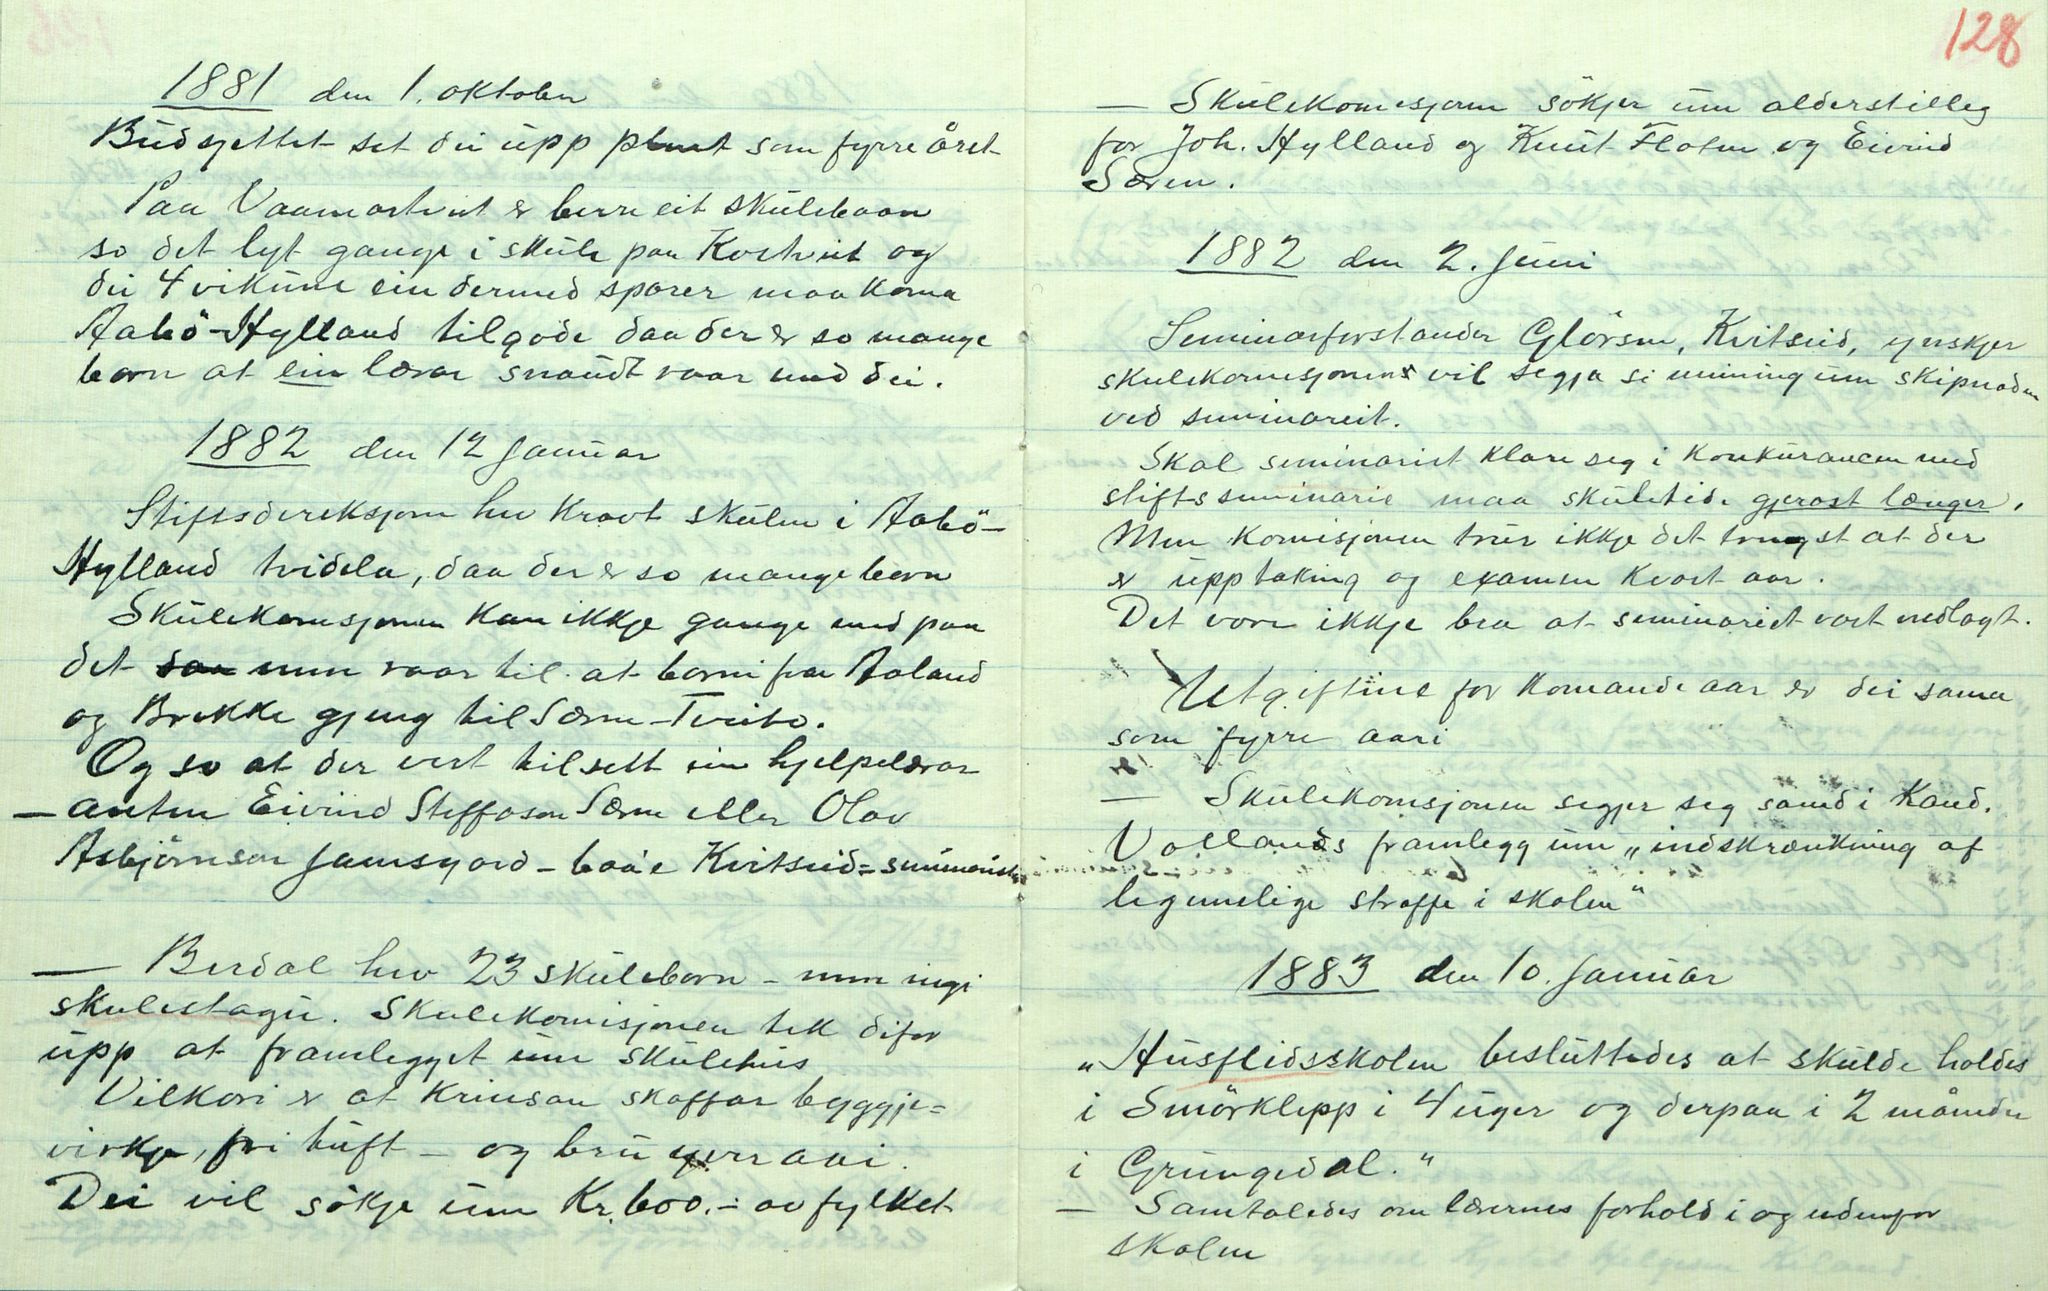 1881 den 1. oktober
Budsjettet set dei upp plent som fyrre året
Paa Vaamartveit er berre eit skulebaan
so det lyt gange i skule paa Kostveit og
dei 4 vikune ein dermed sparer maa koma
Aabö-Hylland tilgode daa der er so mange
born at ein lærar snaudt raar med dei.
1882 den 12 januar
Stiftsdireksjonen hev kravt skulen i Aabö-
Hylland tvidela, daa der er so mange born
Skulekomisjonen kan ikkje gange med paa
det men raar til at borni fraa Aaland
og Brekke gjeng til Særen-Tveito.
Og so at der vert tilsett ein hjelpelærar
– anten Eivind Steffason Særen eller Olav
Asbjörnson Jamsgard – baae Kvitseid-seminaristar
— Berdal hev 23 skuleborn – men ingi
skulestogu. Skulekomisjonen tek difor
upp at framlegget um skulehus
Vilkori er at krinsan skaffar byggje-
virkje, fri tuft – og bru yver aai.
Dei vil sökje um Kr. 600.- av fylket
128
— Skulekomisjonen sökjer um alderstillegg
for Joh. Hylland og Knut Flaten og Eivind
Særen.
1882 den 2. juni
Seminarforstander Glörsen, Kvitseid, ynskjer
skulekomisjonens vil segja si meining um skipnaden
ved seminareit.
Skal seminariet klare seg i konkurancen med
stiftsseminarie maa skuletide gjerast længer.
Men komisjonen trur ikkje det trengst at der
er upptaking og examen kvart aar.
Det vore ikkje bra at seminariet vart nedlagt.
Utgiftine for komande aar er dei sama
som fyrre aari
— Skulekomsjonen segjer seg samd i Kand.
Vollands framlegg um „indskrænkning af
legemelige straffe i skolen“
1883 den 10. januar
„Husflidsskolen besluttedes at skulde holdes
i Smörklepp i 4 uger og derpaa i 2 måneder
i Grungedal.“
— Samtaledes om lærernes forhold i og udenfor
skolen